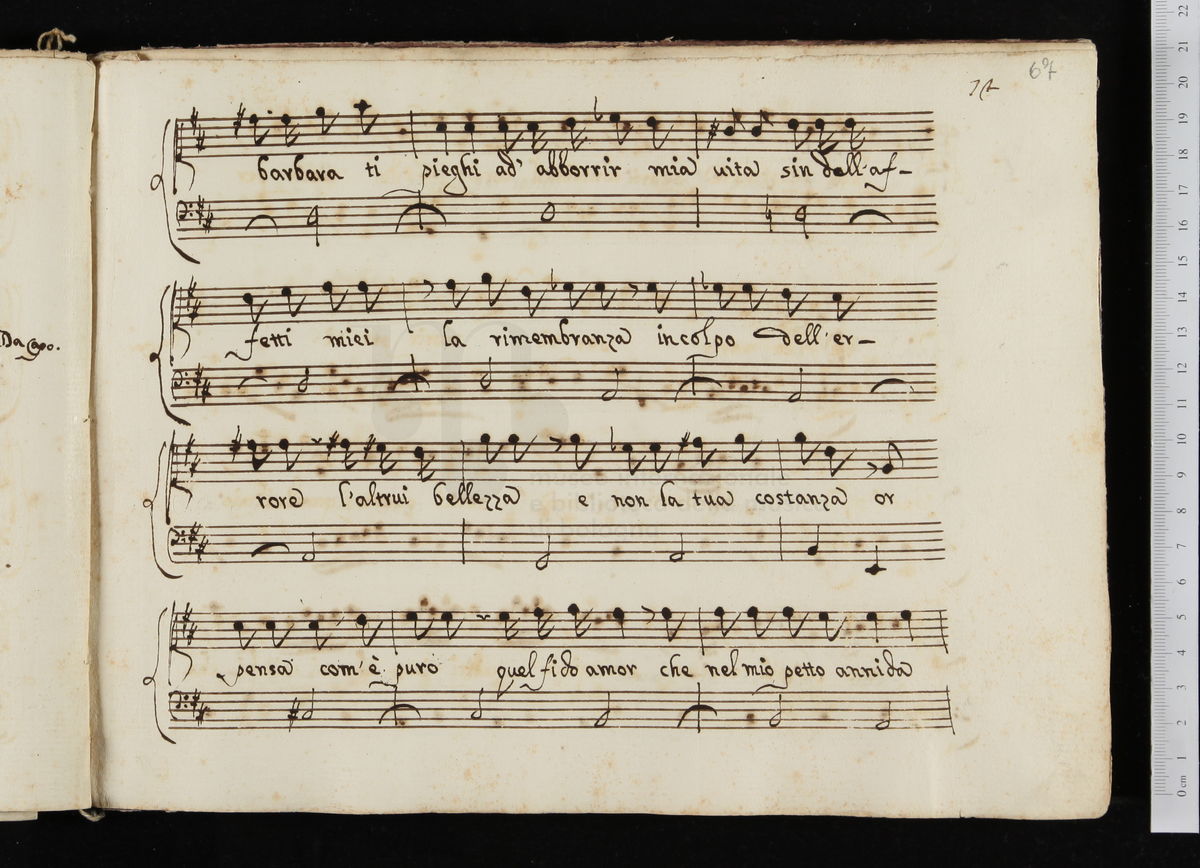 67
barbara ti pieghi ad' abborrir mia uita sin dell'af-
Da Capo.
fetti miei la rimembranza incolpo dell'er-
rore l'altrui bellezza e non la tua costanza or
pensa com'è puro quel fido amor che nel mio petto annida
22
21
20
19
18
17
16
15
14
13
12
11
10
9
8
7
6
5
4
3
2
1
0 cm